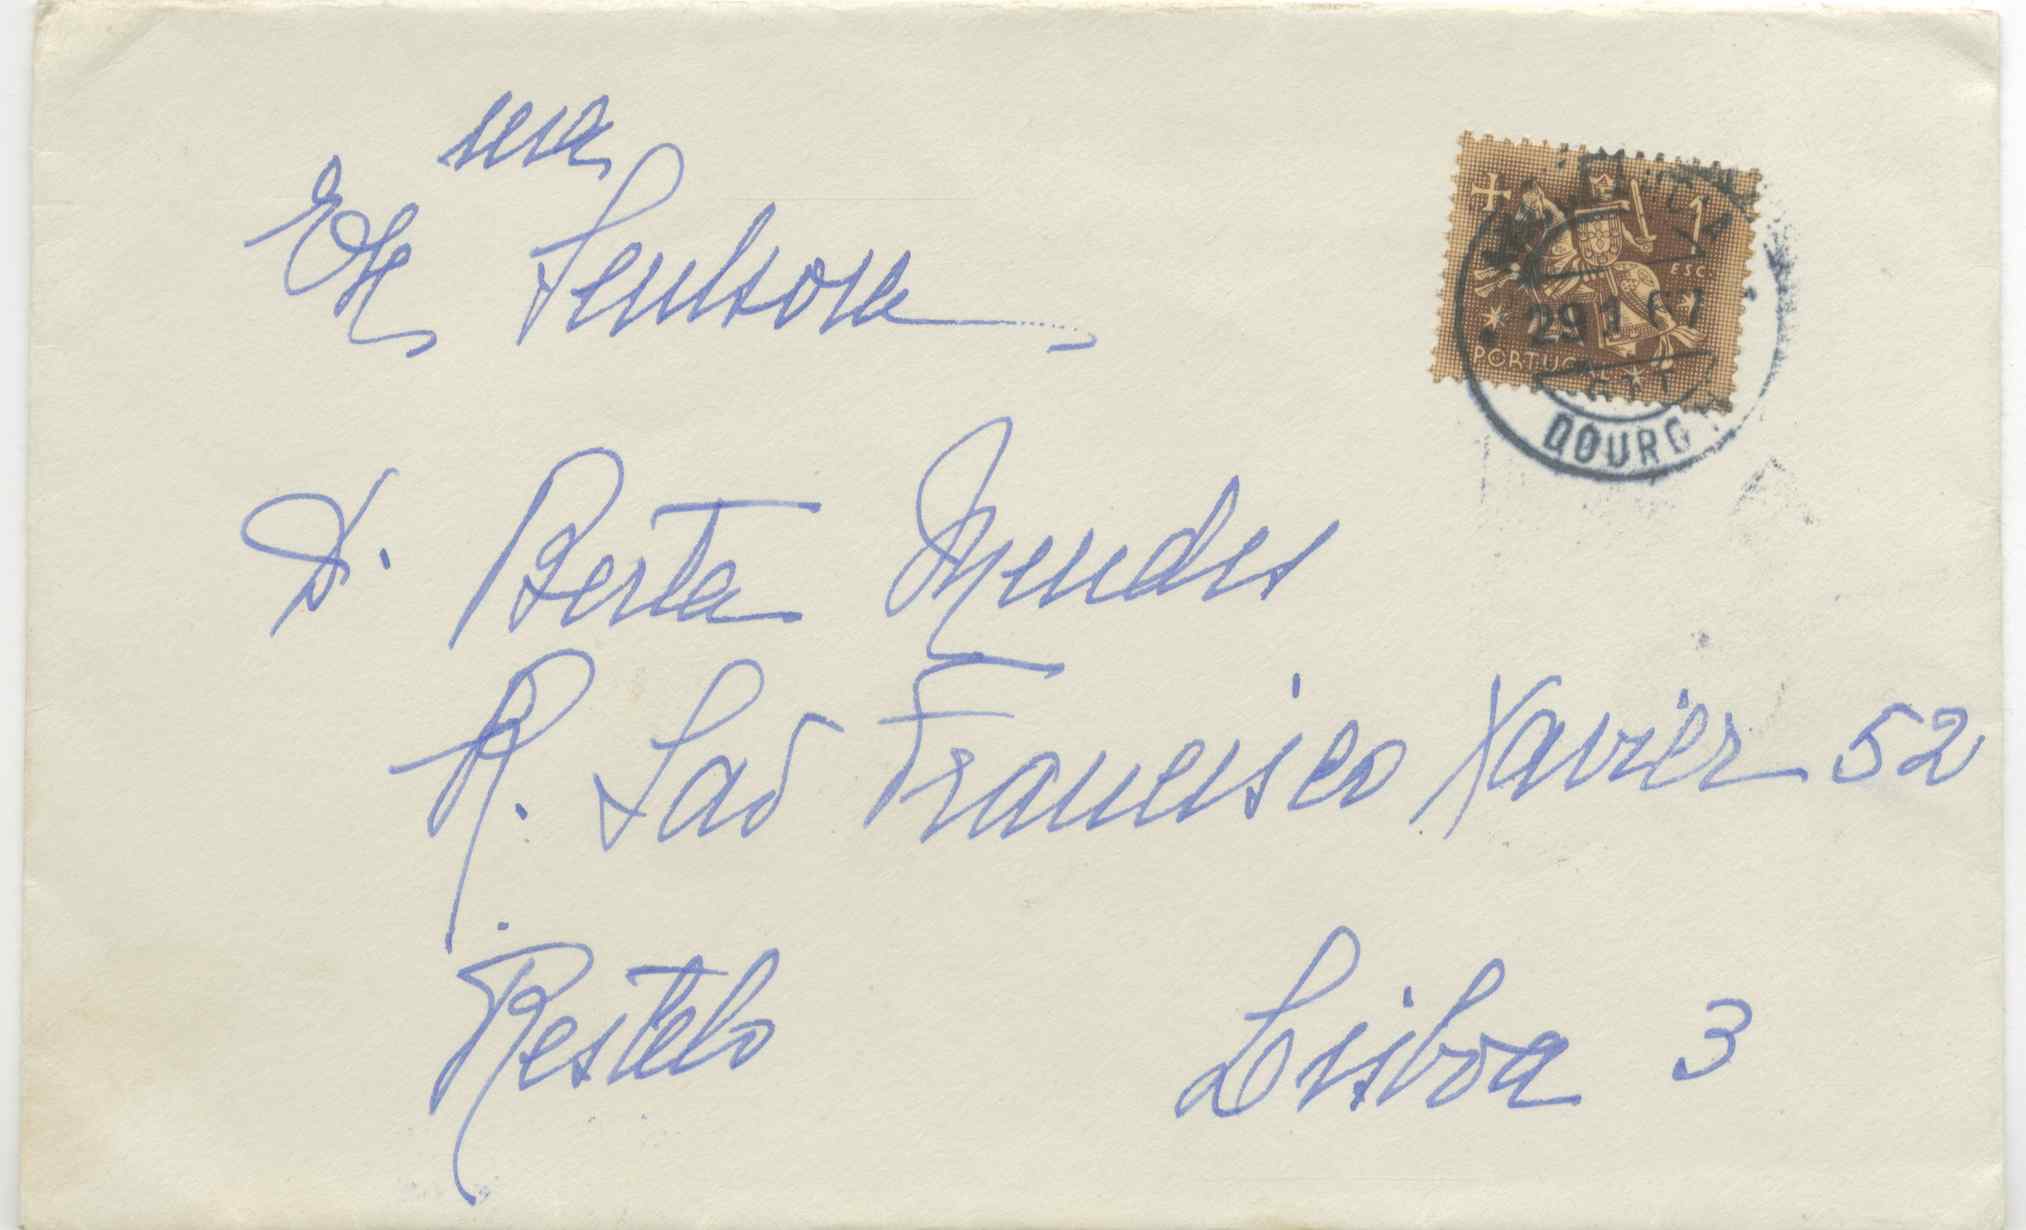 Ex ma Senhora
D. Berta Mendes
R. São Francisco Xavier 52
Restelo Lisboa 3
1
ESC.
PORTUGAL
29 1 67
DOURO